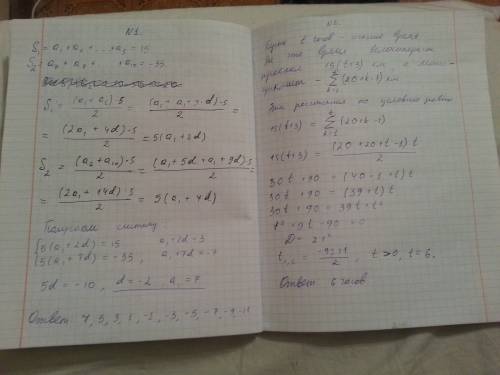 N1.
S₁ = a₁ + a₂ + ... + a₅ = 15
S₂ = a₆ + a₇ + ... a₁₀ = -35
S₁ = (a₁ + a₅)·5 / 2 = (a₁ + a₁ + 4d)·5 / 2 =
= (2a₁ + 4d)·5 / 2 = 5(a₁ + 2d)
S₂ = (a₆ + a₁₀)·5 / 2 = (a₁ + 5d + a₁ + 9d)·5 / 2 =
= (2a₁ + 14d)·5 / 2 = 5(a₁ + 7d)
Получаем систему
5(a₁ + 2d) = 15 a₁ + 2d = 3
5(a₁ + 7d) = -35, a₁ + 7d = -7
5d = -10, d = -2 a₁ = 7
Ответ 7, 5, 3, 1, -1, -3, -5, -7, -9, -11
N2.
t часов - время
За это время велосипедист
проехал 15(t+3) км, а
- ∑ (20+k-1) км
k=1
расстояния по условию равны
15(t+3) = ∑ (20+k-1)
15(t+3) = (20+20+t-1) t / 2
30t + 90 = (40-1+t) t
30t + 90 = (39+t) t
30t + 90 = 39t + t²
t² + 9t - 90 = 0
D = 21²
t₁,₂ = -9±21 / 2, t>0, t=6.
Ответ 6 часов